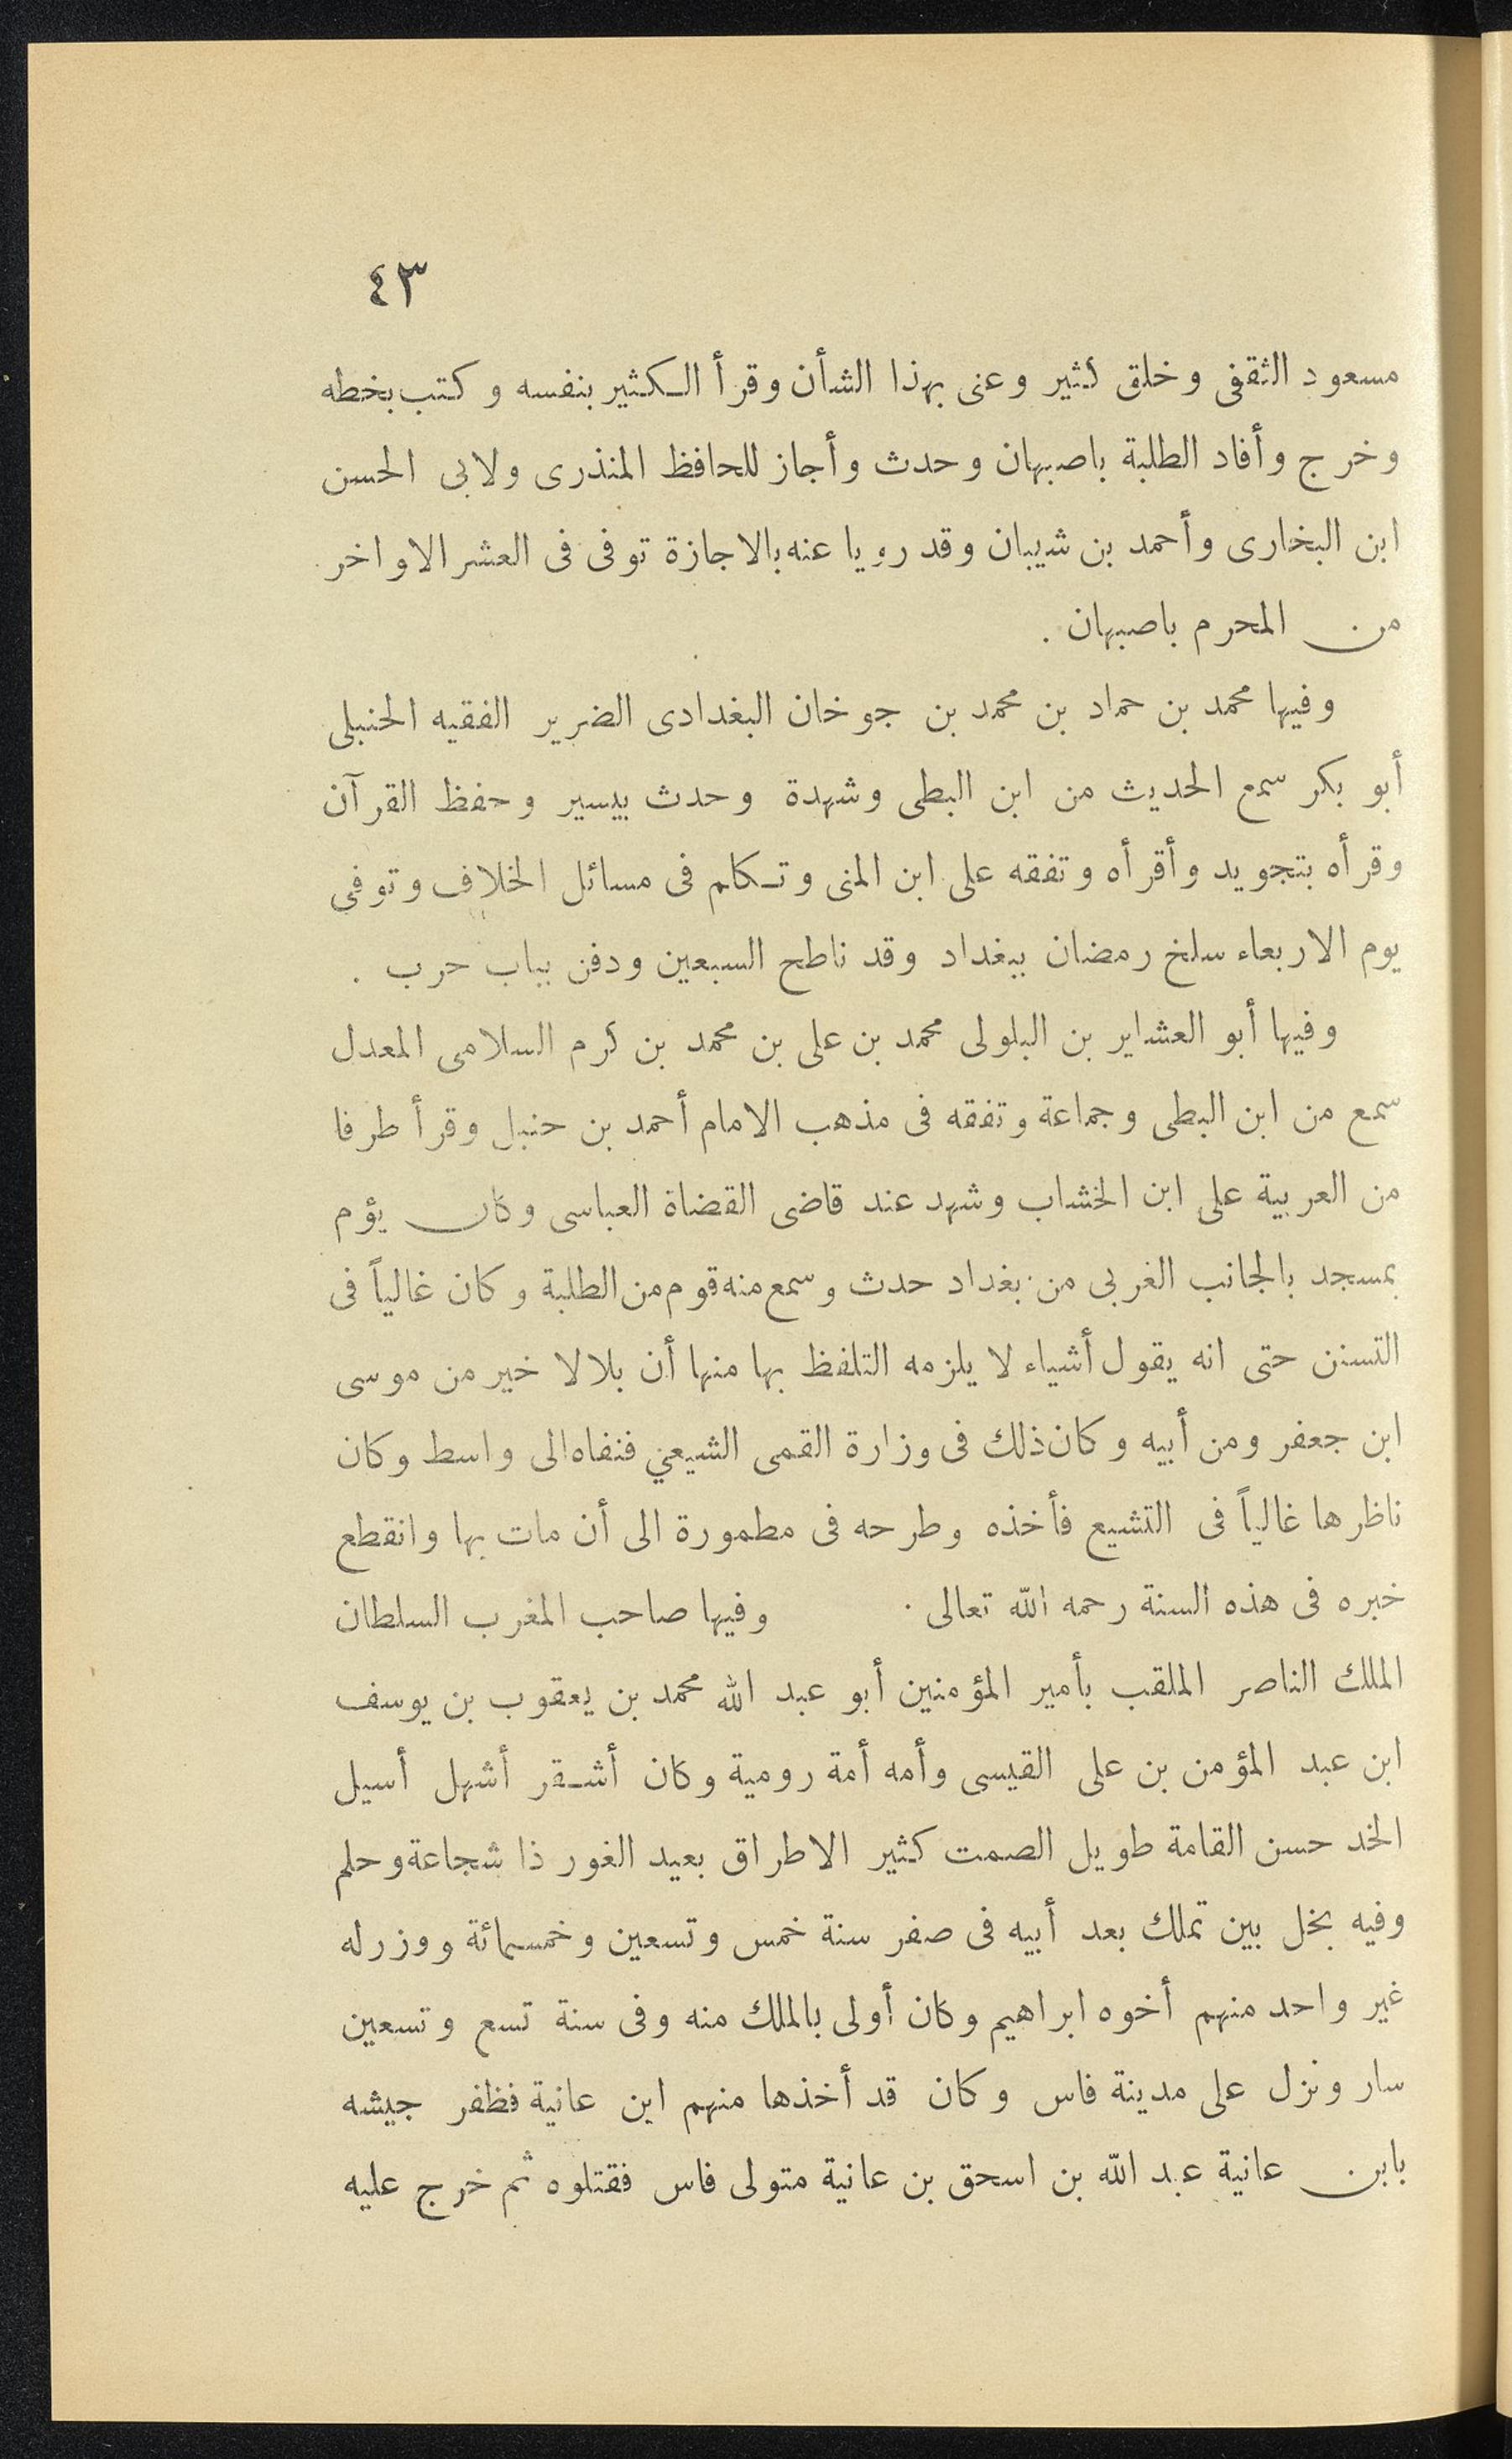 ٤٣
مسعود الثقفى وخلق كثير وعنى بهذا الشأن وقرأ الكثير بنفسه وكتب بخطه
وخرج وأفاد الطلبة باصبهان وحدث وأجاز للحافظ المنذرى ولابى الحسن
ابن البخارى وأحمد بن شيبان وقد رويا عنه بالاجازة توفى فى العشر الاواخر
من المحرم باصبهان .
وفيها محمد بن حماد بن محمد بن جوخان البغدادى الضرير الفقيه الحنبلى
أبو بكر سمع الحديث من ابن البطى وشهدة وحدث بيسير وحفظ القرآن
وقرأه بتجويد وأقرأه وتفقه على ابن المنى وتكلم فى مسائل الخلاف وتوفى
يوم الاربعاء سلخ رمضان ببغداد وقد ناطح السبعين ودفن بباب حرب .
وفيها أبو العشاير بن البلولى محمد بن على بن محمد بن كرم السلامى المعدل
سمع من ابن البطى وجماعة وتفقه فى مذهب الامام أحمد بن حنبل وقرأ طرفا
من العربية على ابن الخشاب وشهد عند قاضى القضاة العباسى وكان يؤم
بمسجد بالجانب الغربى من بغداد حدث وسمع منه قوم من الطلبة وكان غالياً فى
التسنن حتى انه يقول أشياء لا يلزمه التلفظ بها منها أن بلالا خير من موسى
ابن جعفر ومن أبيه وكان ذلك فى وزارة القمى الشيعي فنفاه الى واسط وكان
ناظرها غالياً فى التشيع فأخذه وطرحه فى مطمورة الى أن مات بها وانقطع
خبره فى هذه السنة رحمه الله تعالى . وفيها صاحب المغرب السلطان
الملك الناصر الملقب بأمير المؤمنين أبو عبد الله محمد بن يعقوب بن يوسف
ابن عبد المؤمن بن على القيسى وأمه أمة رومية وكان أشقر أشهل أسيل
الخد حسن القامة طويل الصمت كثير الاطراق بعيد الغور ذا شجاعة وحلم
وفيه بخل بين تملك بعد أبيه فى صفر سنة خمس وتسعين وخمسمائة ووزر له
غير واحد منهم أخوه ابراهيم وكان أولى بالملك منه وفى سنة تسع وتسعين
سار ونزل على مدينة فاس وكان قد أخذها منهم ابن عانية فظفر جيشه
بابن عانية عبد الله بن اسحق بن عانية متولى فاس فقتلوه ثم خرج عليه